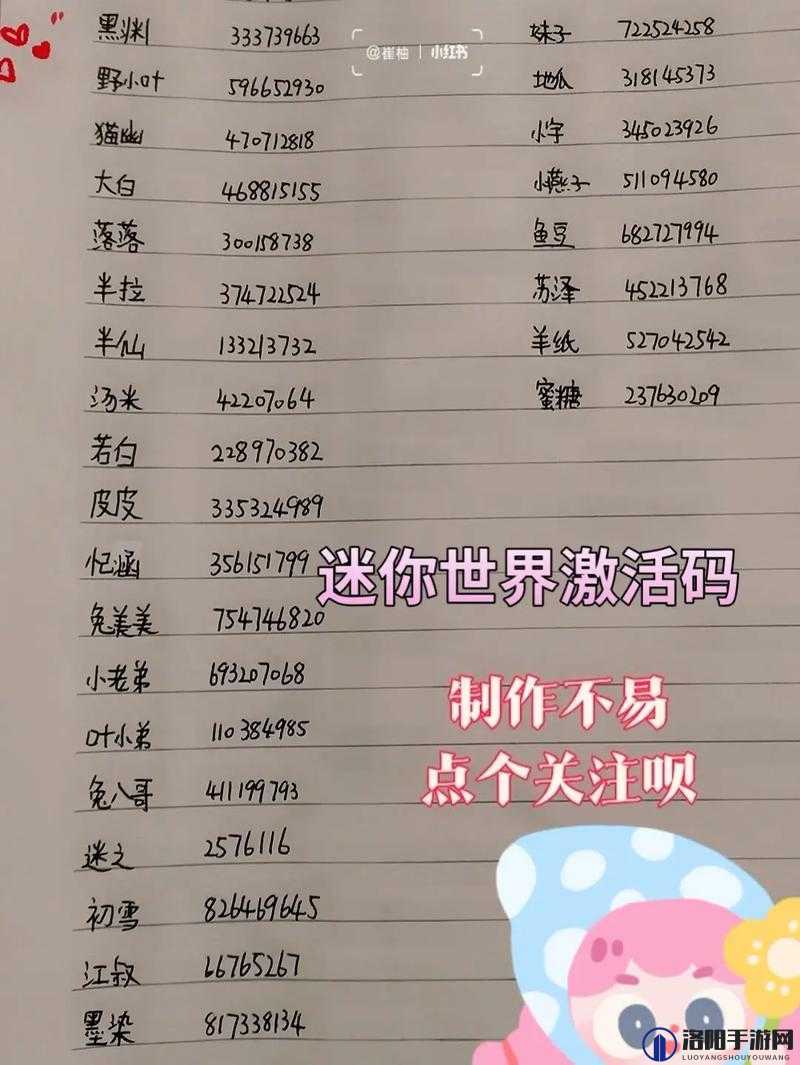 黑渊 333739663
野小叶 596652930
猫幽 470712818
大白 468815155
落落 300158738
半拉 374722524
半仙 133213732
汤米 42207064
若白 228970382
皮皮 335324989
忆涵 356151799
兔美美 754746820
小老弟 693207068
叶小弟 110384985
兔八哥 411199793
迷之 2576116
初雪 826469645
江叔 66765267
墨染 817338134
@崔柚 | 小红书
妹子 722524258
地瓜 318145373
小宇 345023926
小燕子 511094580
鱼豆 682727994
苏泽 452213768
羊纸 527042542
蜜糖 237630209
迷你世界激活码
制作不易
点个关注呗
洛阳手游网
LUOYANGSHOUYOUWANG